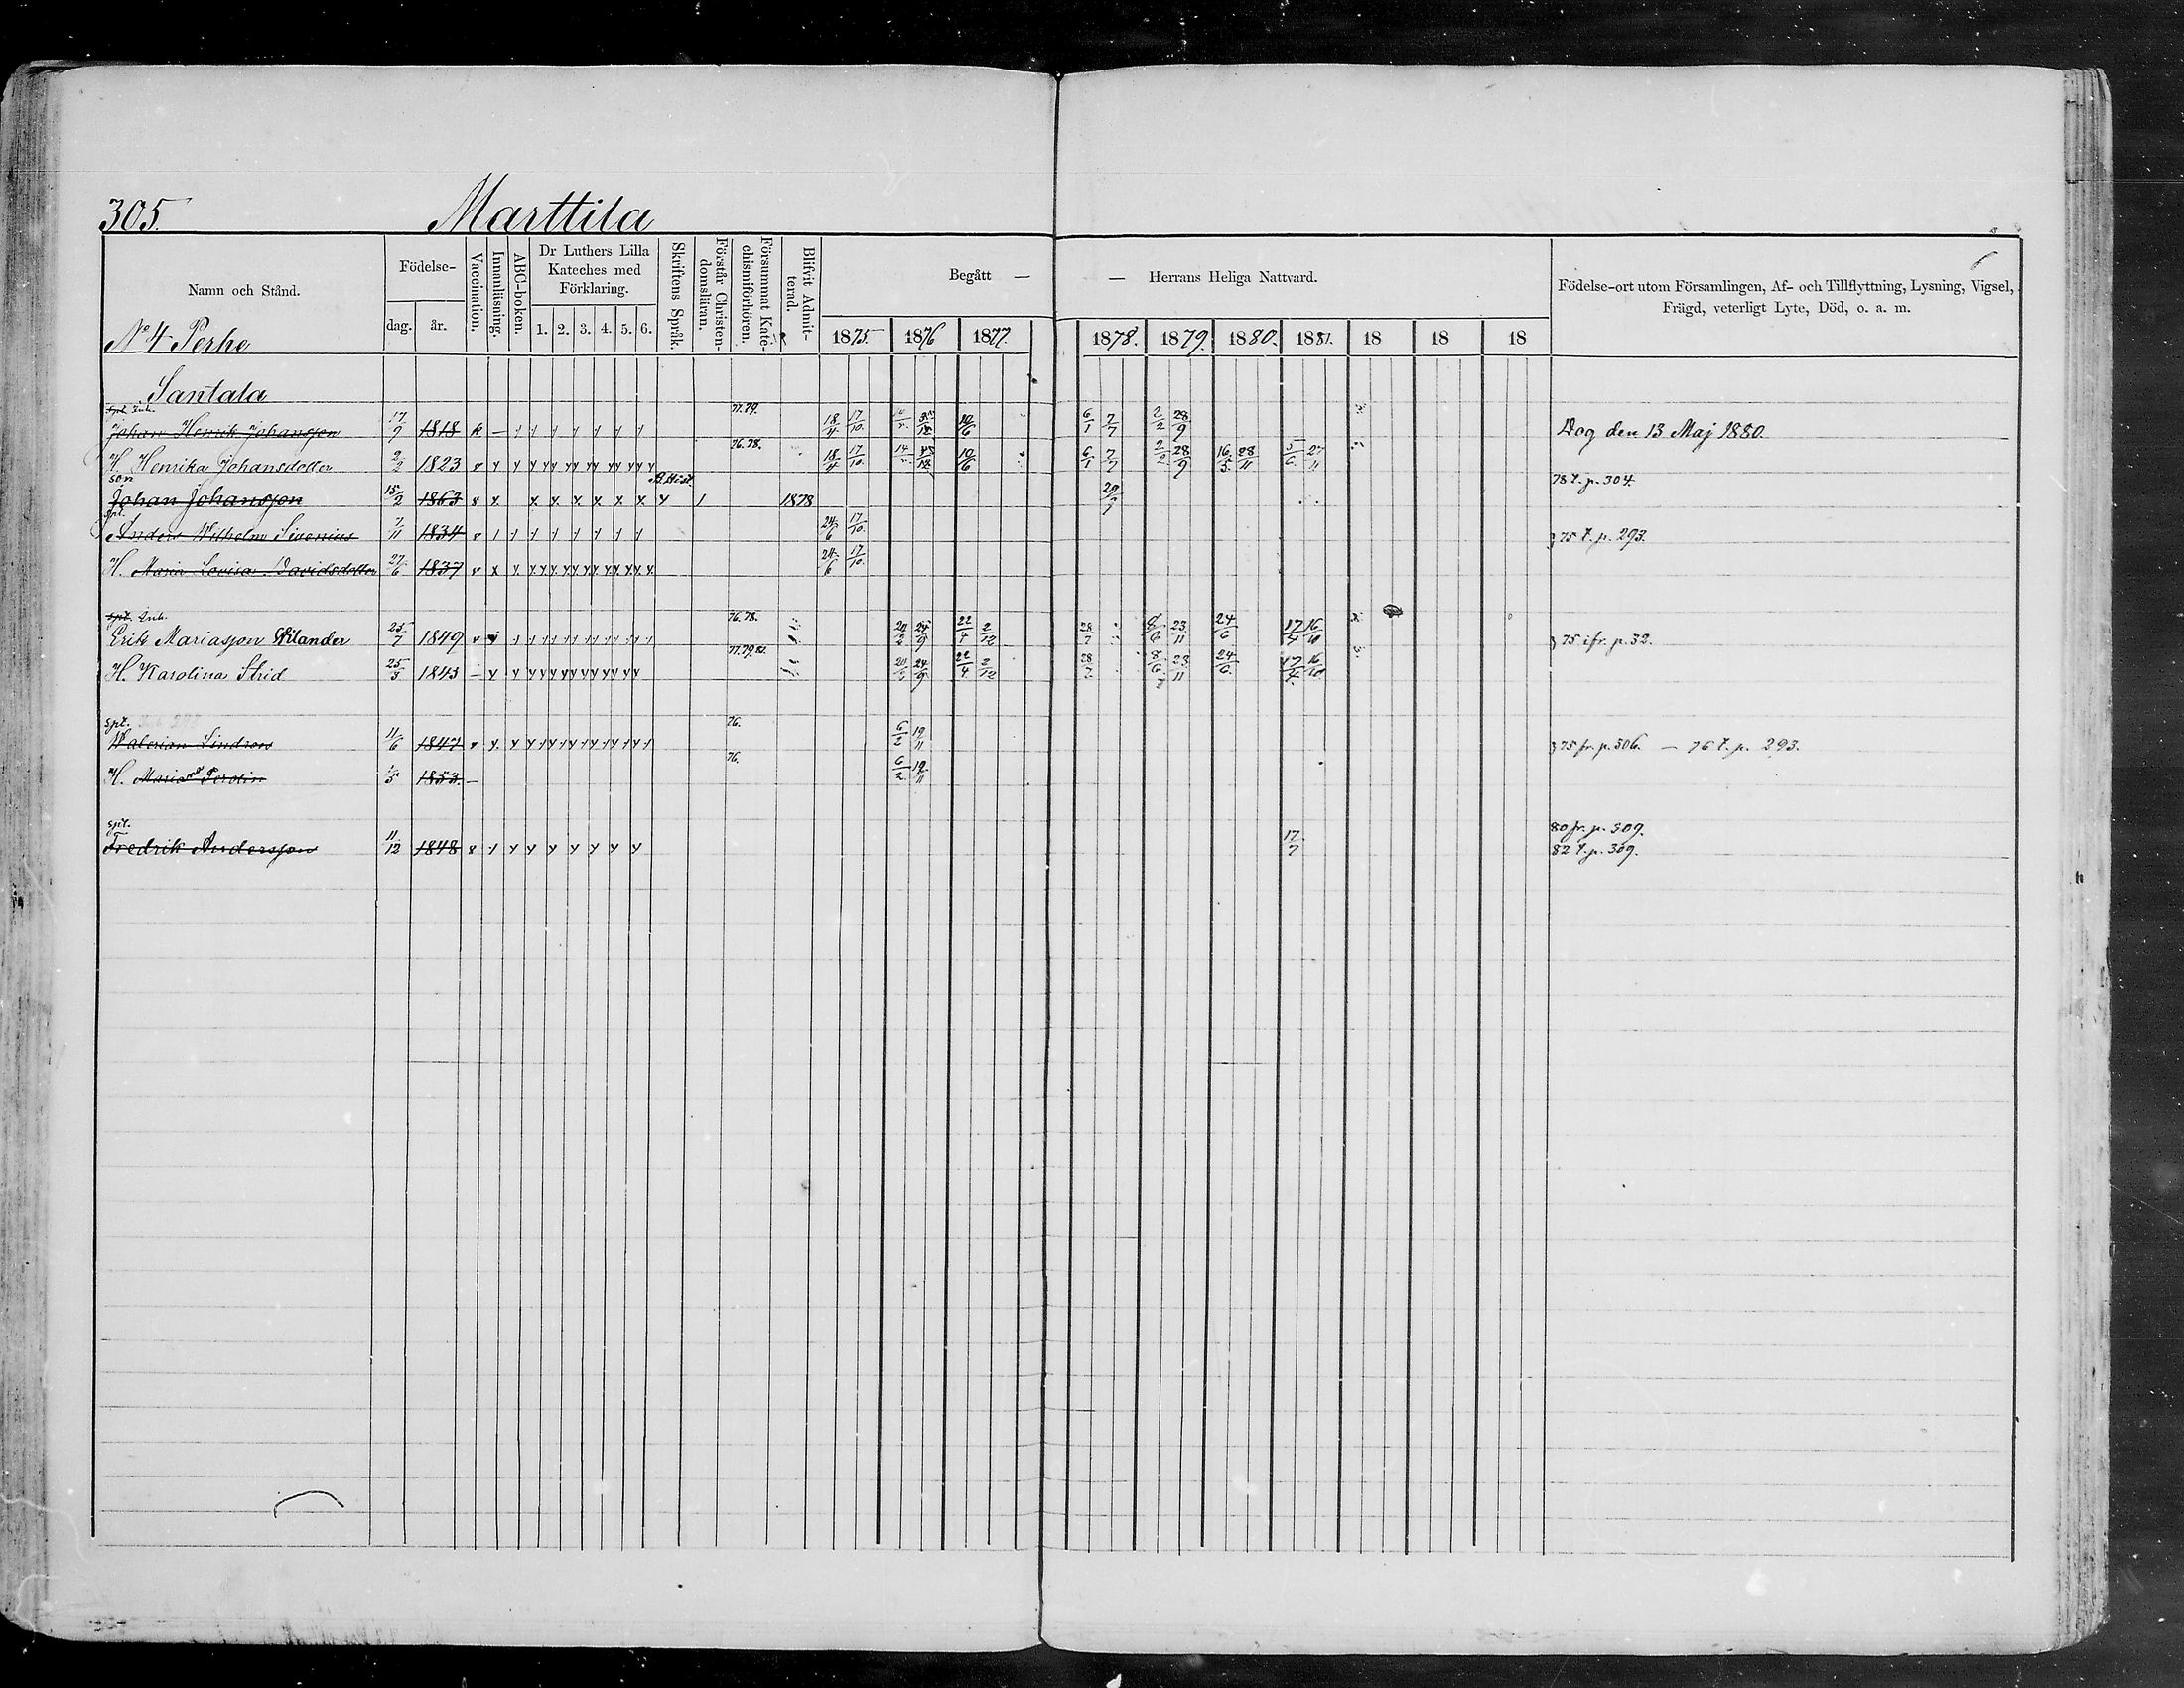 305.
Marttila
Namn och Stånd.
Födelse-
dag.
år.
Vaccination.
Innanläsning.
ABC-boken.
Dr Luthers Lilla
Kateches med
Förklaring.
1. 2. 3. 4. 5. 6.
Skriftens Språk.
Förstår Christen-
domsläran.
Försummat Kate-
chismiförhören.
Blifvit Admit-
terad.
Begått —
— Herrans Heliga Nattvard.
1875. 1876 1877. 1878. 1879. 1880. 1881. 18 18 18
Födelse-ort utom Församlingen, Af- och Tillflyttning, Lysning, Vigsel,
Frägd, veterligt Lyte, Död, o. a. m.
No 4 Perhe
Santala
77.79.
Johan Henrik Johansson 17/9 1818 18/4 17/10. 10/6 6/1 7/7 2/2 28/9 Dog den 13 Maj 1880.
76.78.
H. Henrika Johansdotter 2/2 1823 18/4 17/10. 10/6 6/1 7/7 2/2 28/9 16/5. 28/11 5/6. 27/11
son
Johan Johansson 15/2 1863 1878 29/7 78 t. p. 304.
Anders Wilhelm Sivenius 7/11 1834 24/6 17/10. 75 t. p. 293.
H. Maria Lovisa Davidsdotter 27/6 1837 24/6 17/10.
76.78.
Erik Mariasson Wilander 25/7 1849 20/2 24/9 22/4 2/12 28/7 8/6 23/11 24/6 17/4 16/10 75 ifr. p. 32.
77.79.81.
H. Karolina Strid 25/3 1843 24/9 22/4 2/12 28/7 8/6. 23/11 24/6. 17/4. 16/10
spt.
76.
Walerian Lindroos 11/6 1847 6/2 19/11 75 fr. p. 306. — 76 t. p. 293.
76.
H. Maria Perolin 1853. 6/2 19/11
spt.
80 fr. p. 309.
Fredrik Andersson 11/12 1848 17/7
82 t. p. 309.